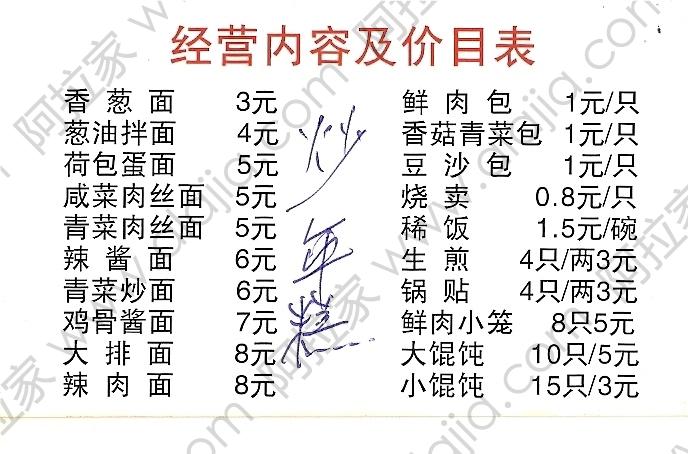 经营内容及价目表
香葱面 3元
葱油拌面 4元
荷包蛋面 5元
咸菜肉丝面 5元
青菜肉丝面 5元
辣酱面 6元
青菜炒面 6元
鸡骨酱面 7元
大排面 8元
辣肉面 8元
炒
年
糕
鲜肉包 1元/只
香菇青菜包 1元/只
豆沙包 1元/只
烧卖 0.8元/只
稀饭 1.5元/碗
生煎 4只/两3元
锅贴 4只/两3元
鲜肉小笼 8只5元
大馄饨 10只/5元
小馄饨 15只/3元
阿拉家 www.alajia.com